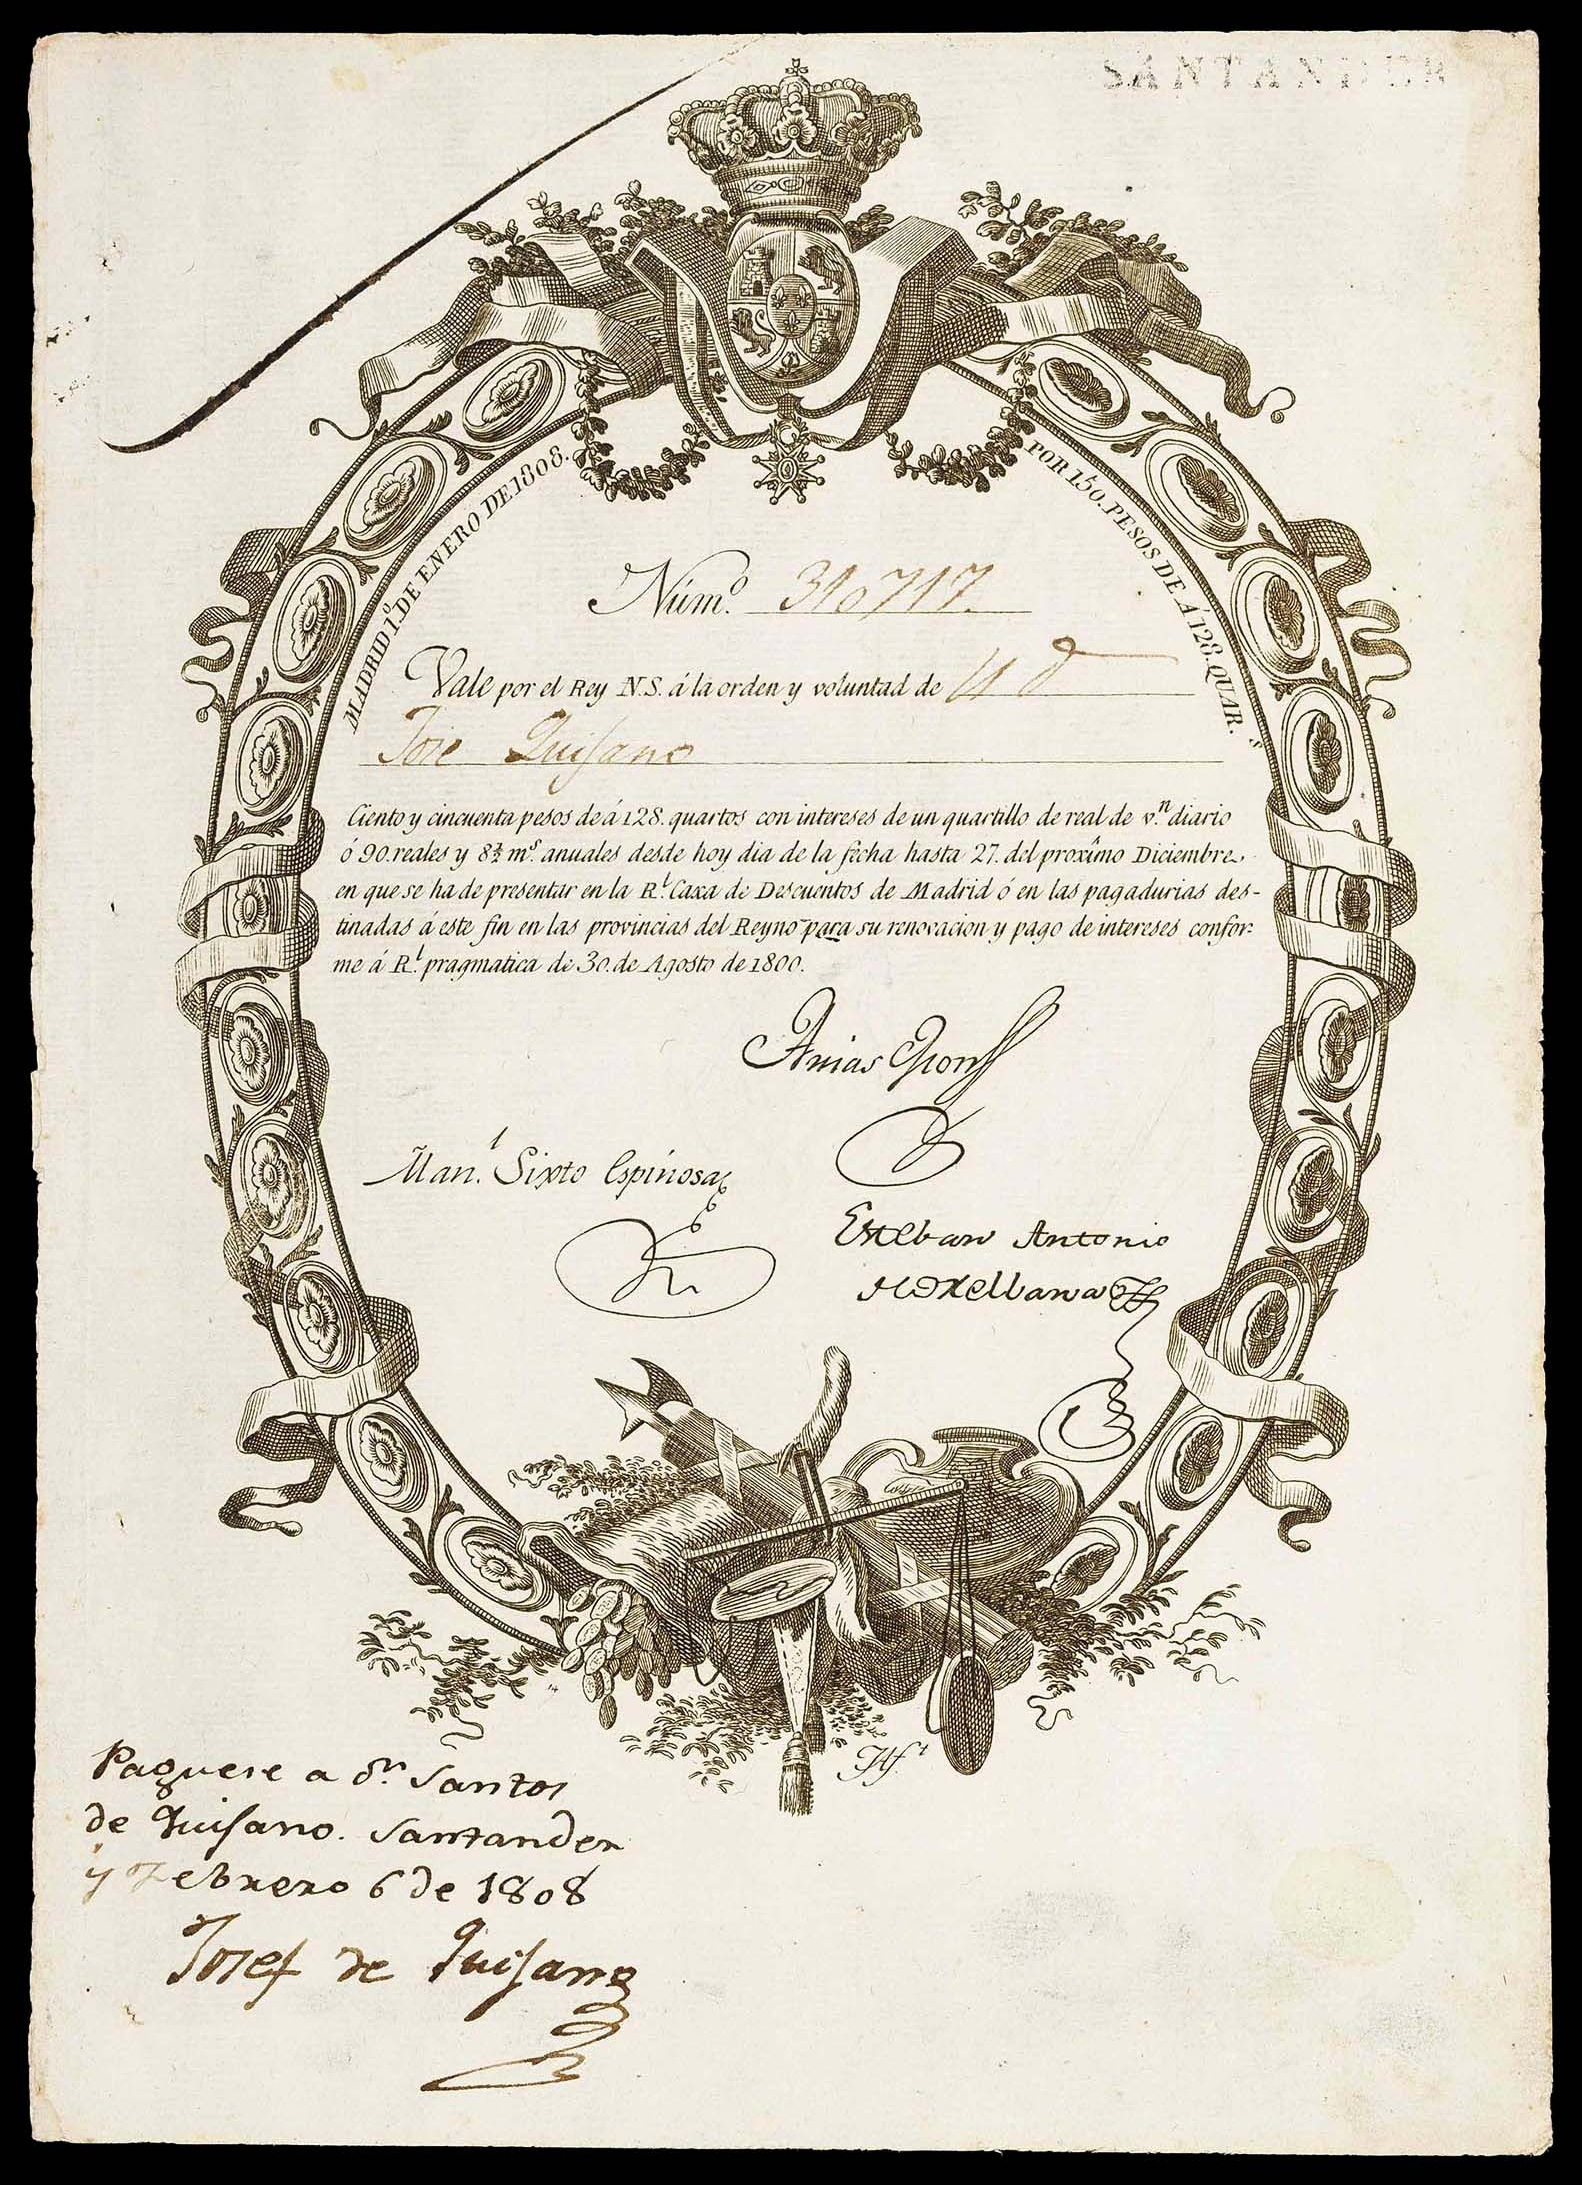 SANTANDER
MADRID 1º DE ENERO DE 1808.
POR 150. PESOS DE Á 128. QUAR.s
Númº. 310717.
Vale por el Rey N.S. á la orden y voluntad de
Jose Quisano
Ciento y cincuenta pesos de á 128. quartos con intereses de un quartillo de real de v.n diario
ó 90. reales y 8½ ms. anuales desde hoy dia de la fecha hasta 27. del proxîmo Diciembre,
en que se ha de presentar en la R.l Caxa de Descuentos de Madrid ó en las pagadurias des-
tinadas á este fin en las provincias del Reyno para su renovacion y pago de intereses confor-
me á R.l pragmatica de 30. de Agosto de 1800.
Arias
Man.l Sixto Espinosa
Esteban Antonio
Paguese a dn. Santos
de Quisano. Santander
y Febrero 6 de 1808
Josef de Quisano